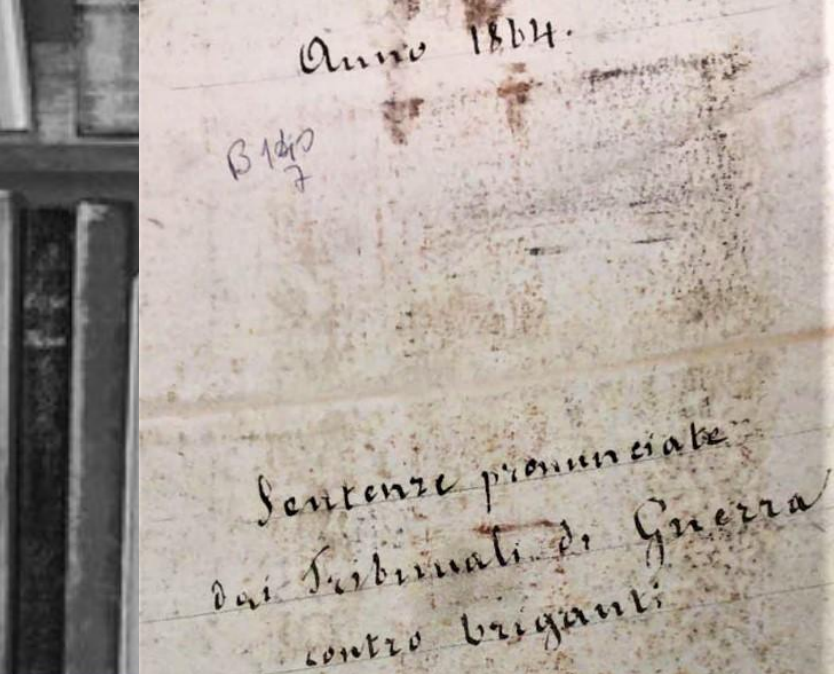 Anno 1864.
B
7
Sentenze pronunciate
dai Tribunali di Guerra
contro briganti